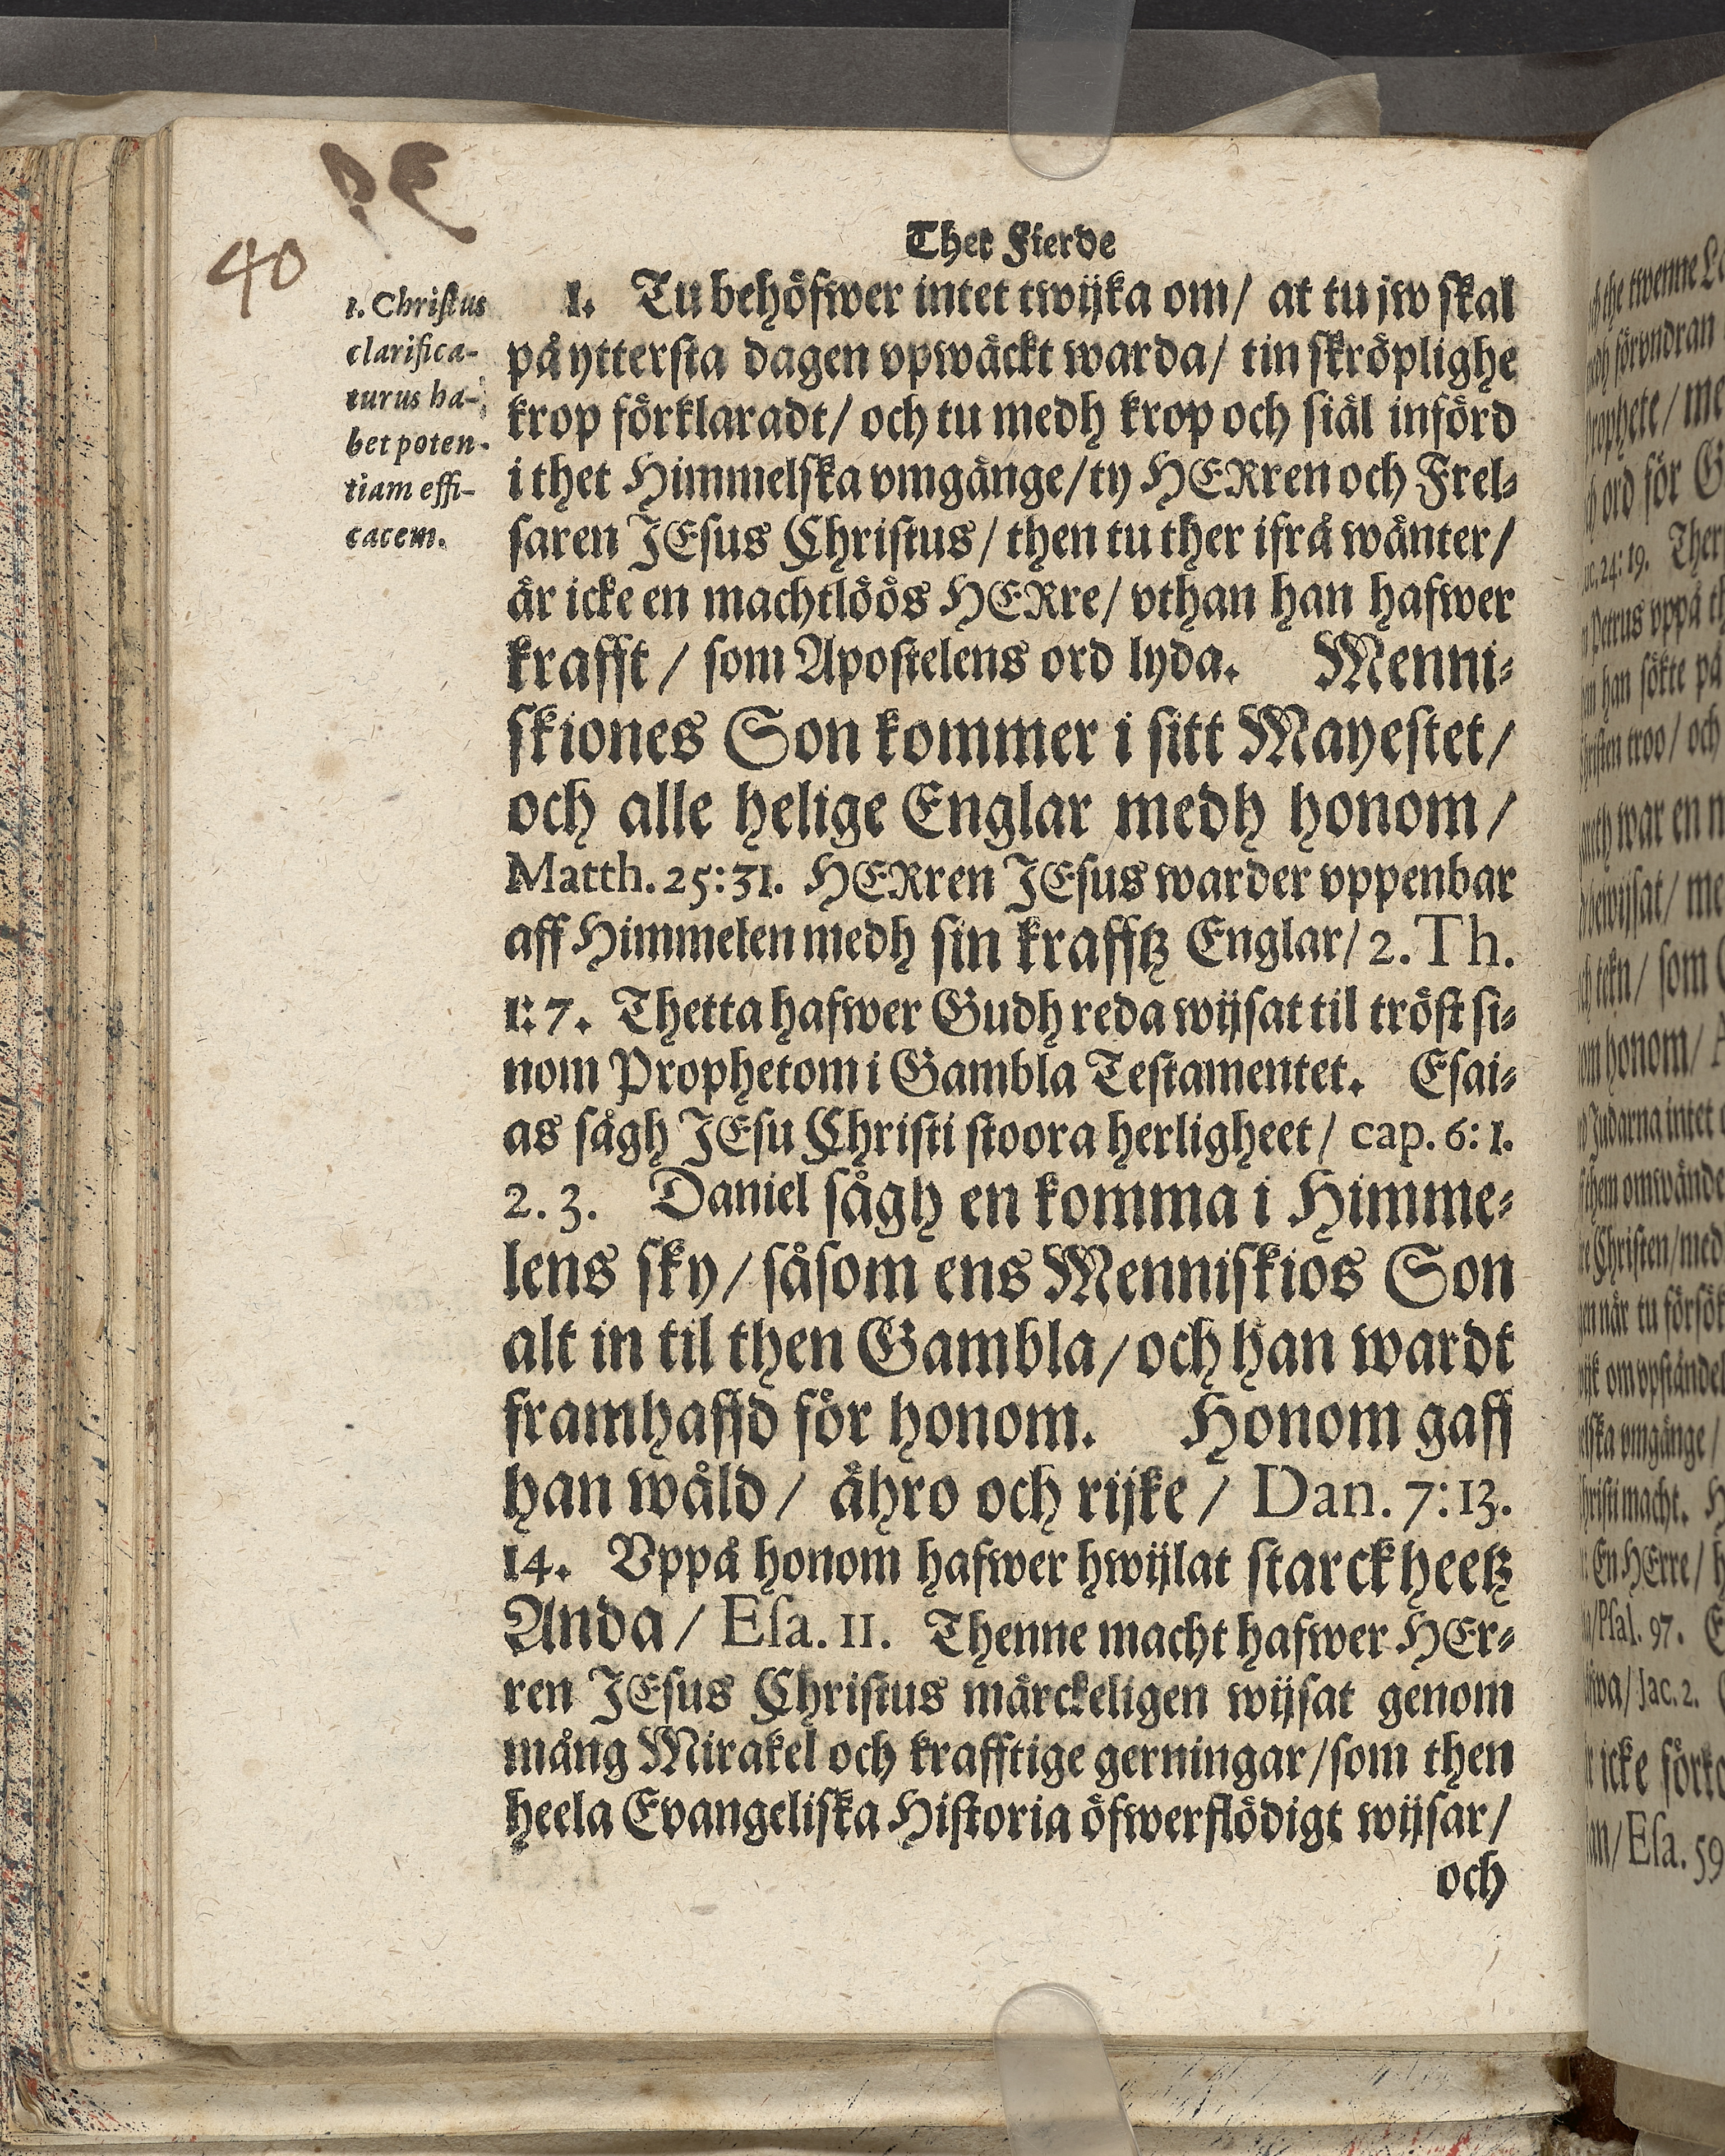 40
Thet Fierde
1. Christus
clarifica-
turus ha-
bet poten-
tiam effi-
cacem.
1. Tu behöfwer intet twijka om / at tu jw skal
på yttersta dagen vpwäckt warda / tin skröplighe
krop förklaradt / och tu medh krop och siäl införd
i thet Himmelska vmgänge / ty HERren och Frel-
saren JEsus Christus / then tu ther ifrå wänter /
är icke en machtlöös HERre / vthan han hafwer
krafft / som Apostelens ord lyda. Menni-
skiones Son kommer i sitt Mayestet /
och alle helige Englar medh honom /
Matth. 25:31. HERren JEsus warder vppenbar
aff Himmelen medh sin krafftz Englar / 2. Th.
1:7. Thetta hafwer Gudh reda wijsat til tröst si-
nom Prophetom i Gambla Testamentet. Esai-
as sågh JEsu Christi stoora herligheet / cap. 6: 1.
2. 3. Daniel sågh en komma i Himme-
lens sky / såsom ens Menniskios Son
alt in til then Gambla / och han wardt
framhafd för honom. Honom gaff
han wåld / ähro och rijke / Dan. 7:13.
14. Vppå honom hafwer hwijlat starckheetz
Anda / Esa. 11. Thenne macht hafwer HEr-
ren JEsus Christus märckeligen wijsat genom
mång Mirakel och krafftige gerningar / som then
heela Evangeliska Historia öfwerflödigt wijsar /
och